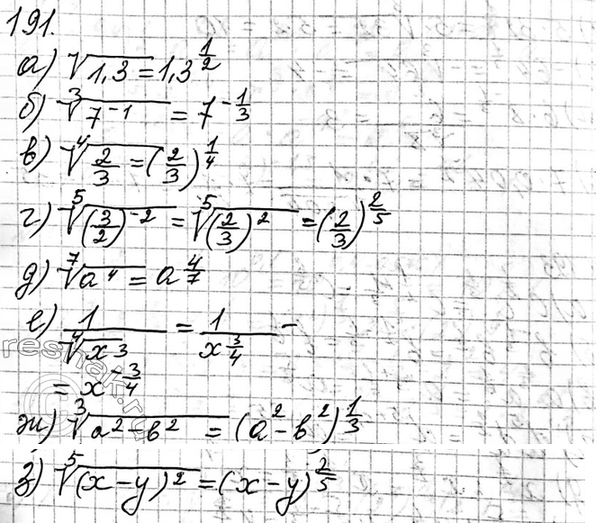 191.
а) √1,3 = 1,3^(1/2)
б) ∛(7^(-1)) = 7^(-1/3)
в) ∜(2/3) = (2/3)^(1/4)
г) ⁵√((3/2)^(-2)) = ⁵√((2/3)^2) = (2/3)^(2/5)
д) ⁷√(a^4) = a^(4/7)
е) 1/∜(x^3) = 1/x^(3/4) =
= x^(-3/4)
ж) ∛(a^2 - b^2) = (a^2 - b^2)^(1/3)
з) ⁵√((x-y)^2) = (x-y)^(2/5)
reshak.ru